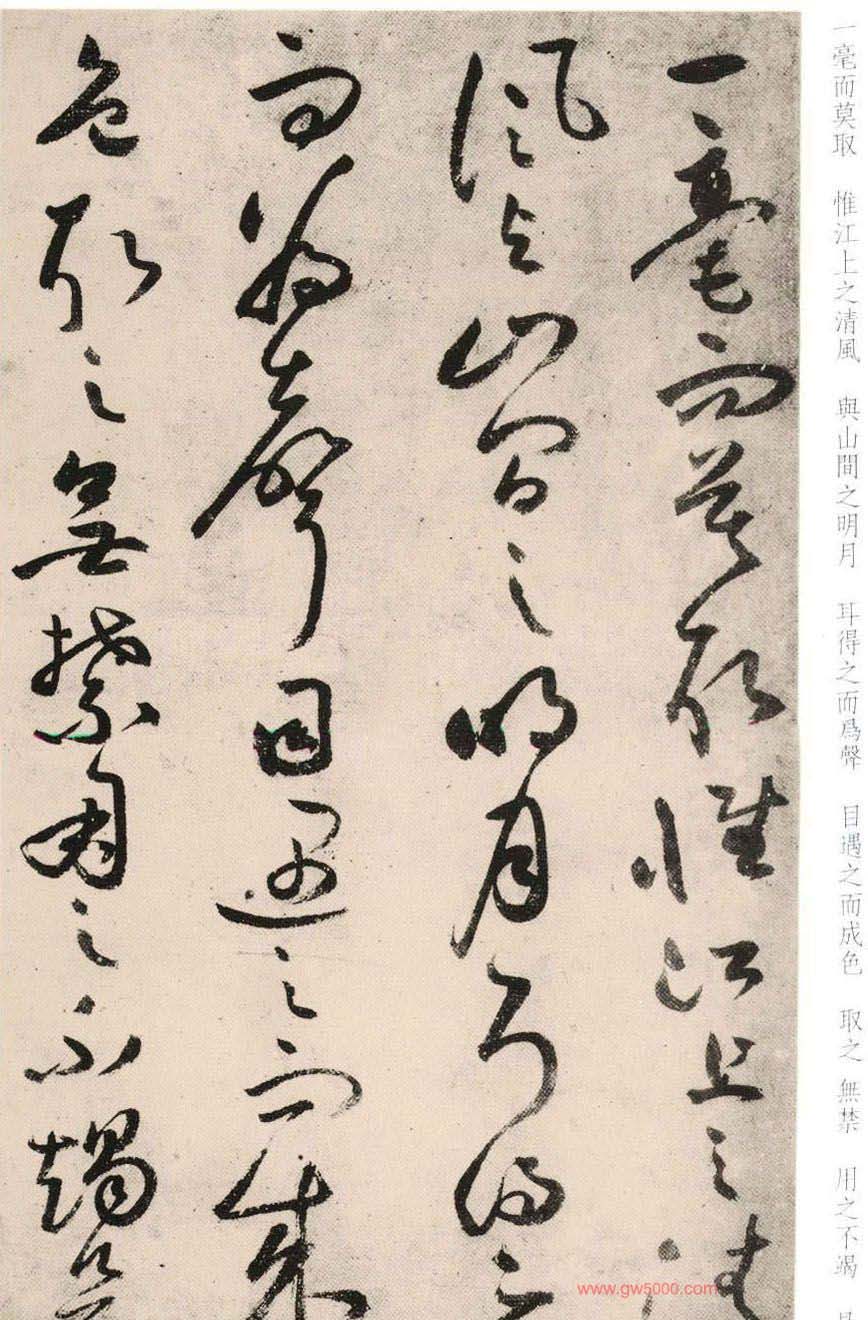 一毫而莫取 惟江上之清風 與山間之明月 耳得之而爲聲 目遇之而成色 取之無禁 用之不竭
一毫而莫取惟江上之清
風與山間之明月耳得之
而爲聲目遇之而成
色取之無禁用之不竭是
www.gw5000.com